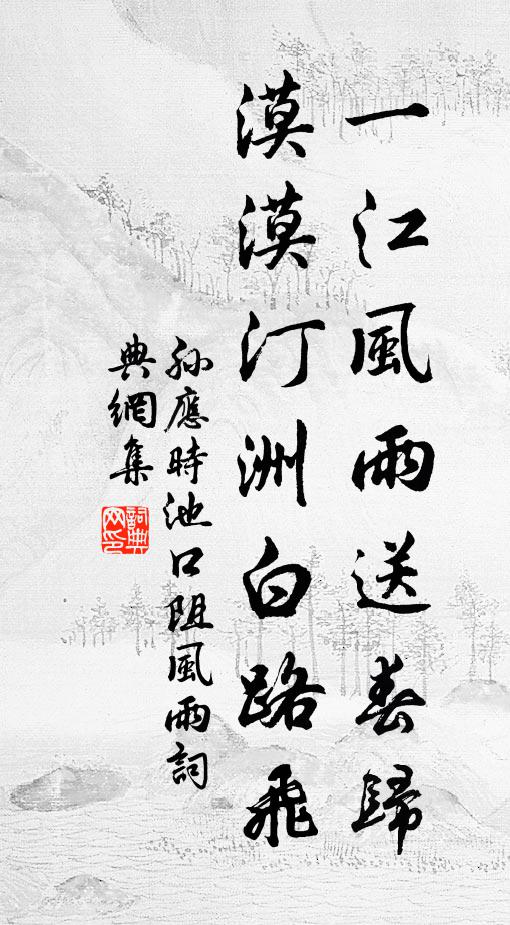 一江風雨送春歸
漠漠汀洲白路飛
孫應時池口阻風雨詞
典網集
詞典
网印